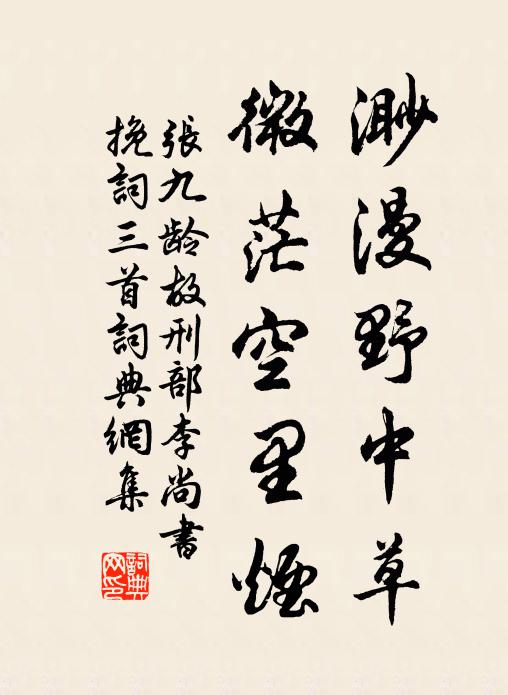 渺漫野中草
微茫空里煙
張九龄故刑部李尚書
挽詞三首詞典網集
詞典網印